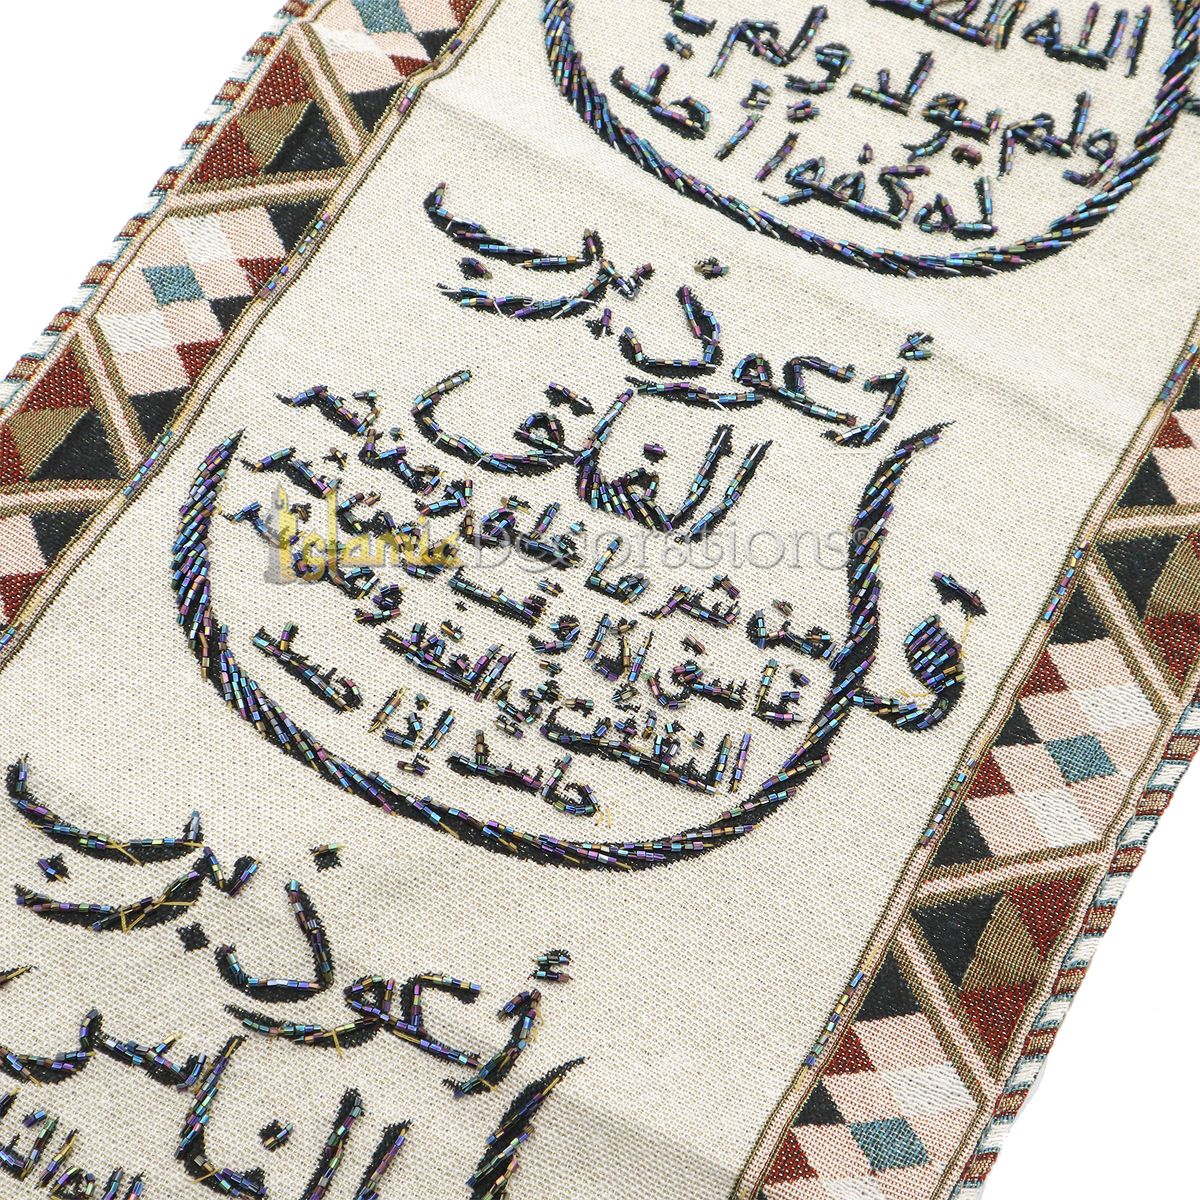 الله الص
ولم يولد ولم ي
له كفوا أحد
قل أعوذ برب
الفلق
من شر ما خلق ومن شر
غاسق إذا وقب ومن شر
النفثت في العقد ومن شر
حاسد إذا حسد
Islamic Decorations®
أعوذ برب
الناس